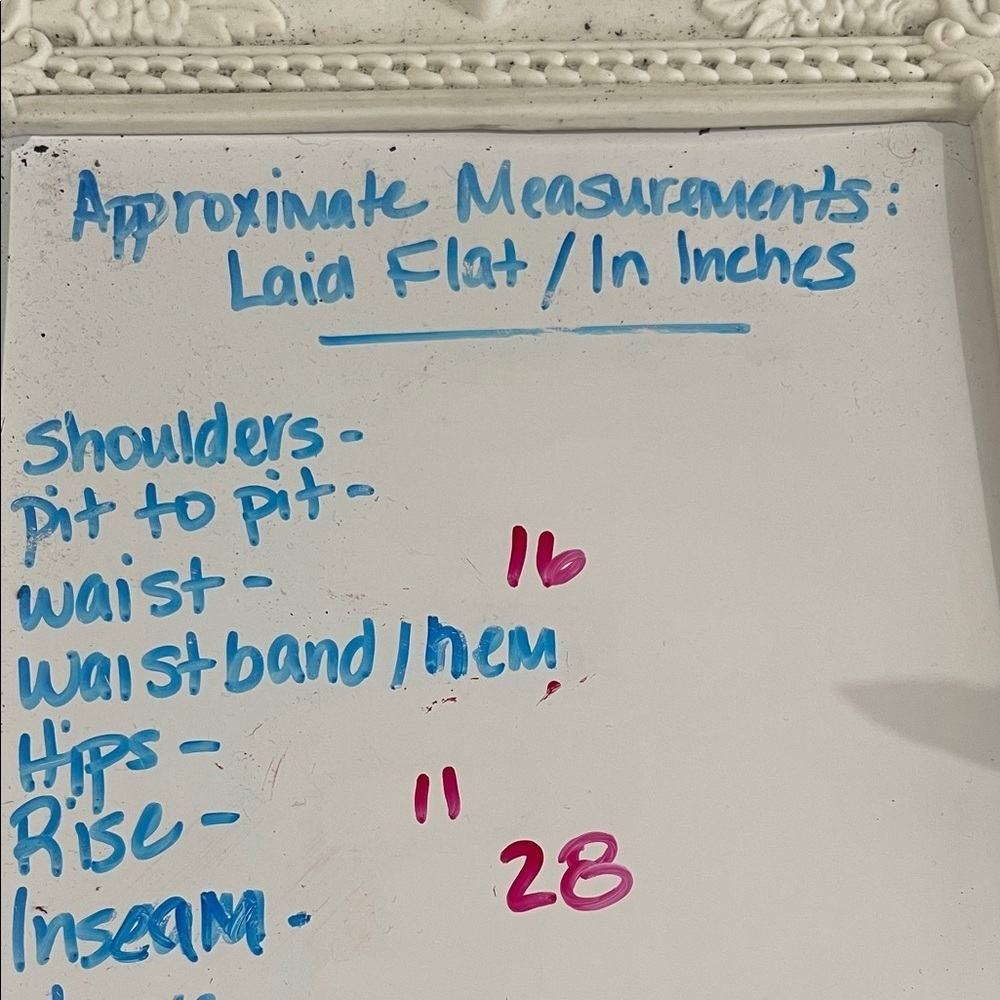 Approximate Measurements:
Laid Flat / In Inches
Shoulders -
Pit to pit -
Waist - 16
Waistband / hem
Hips -
Rise - 11
Inseam - 28